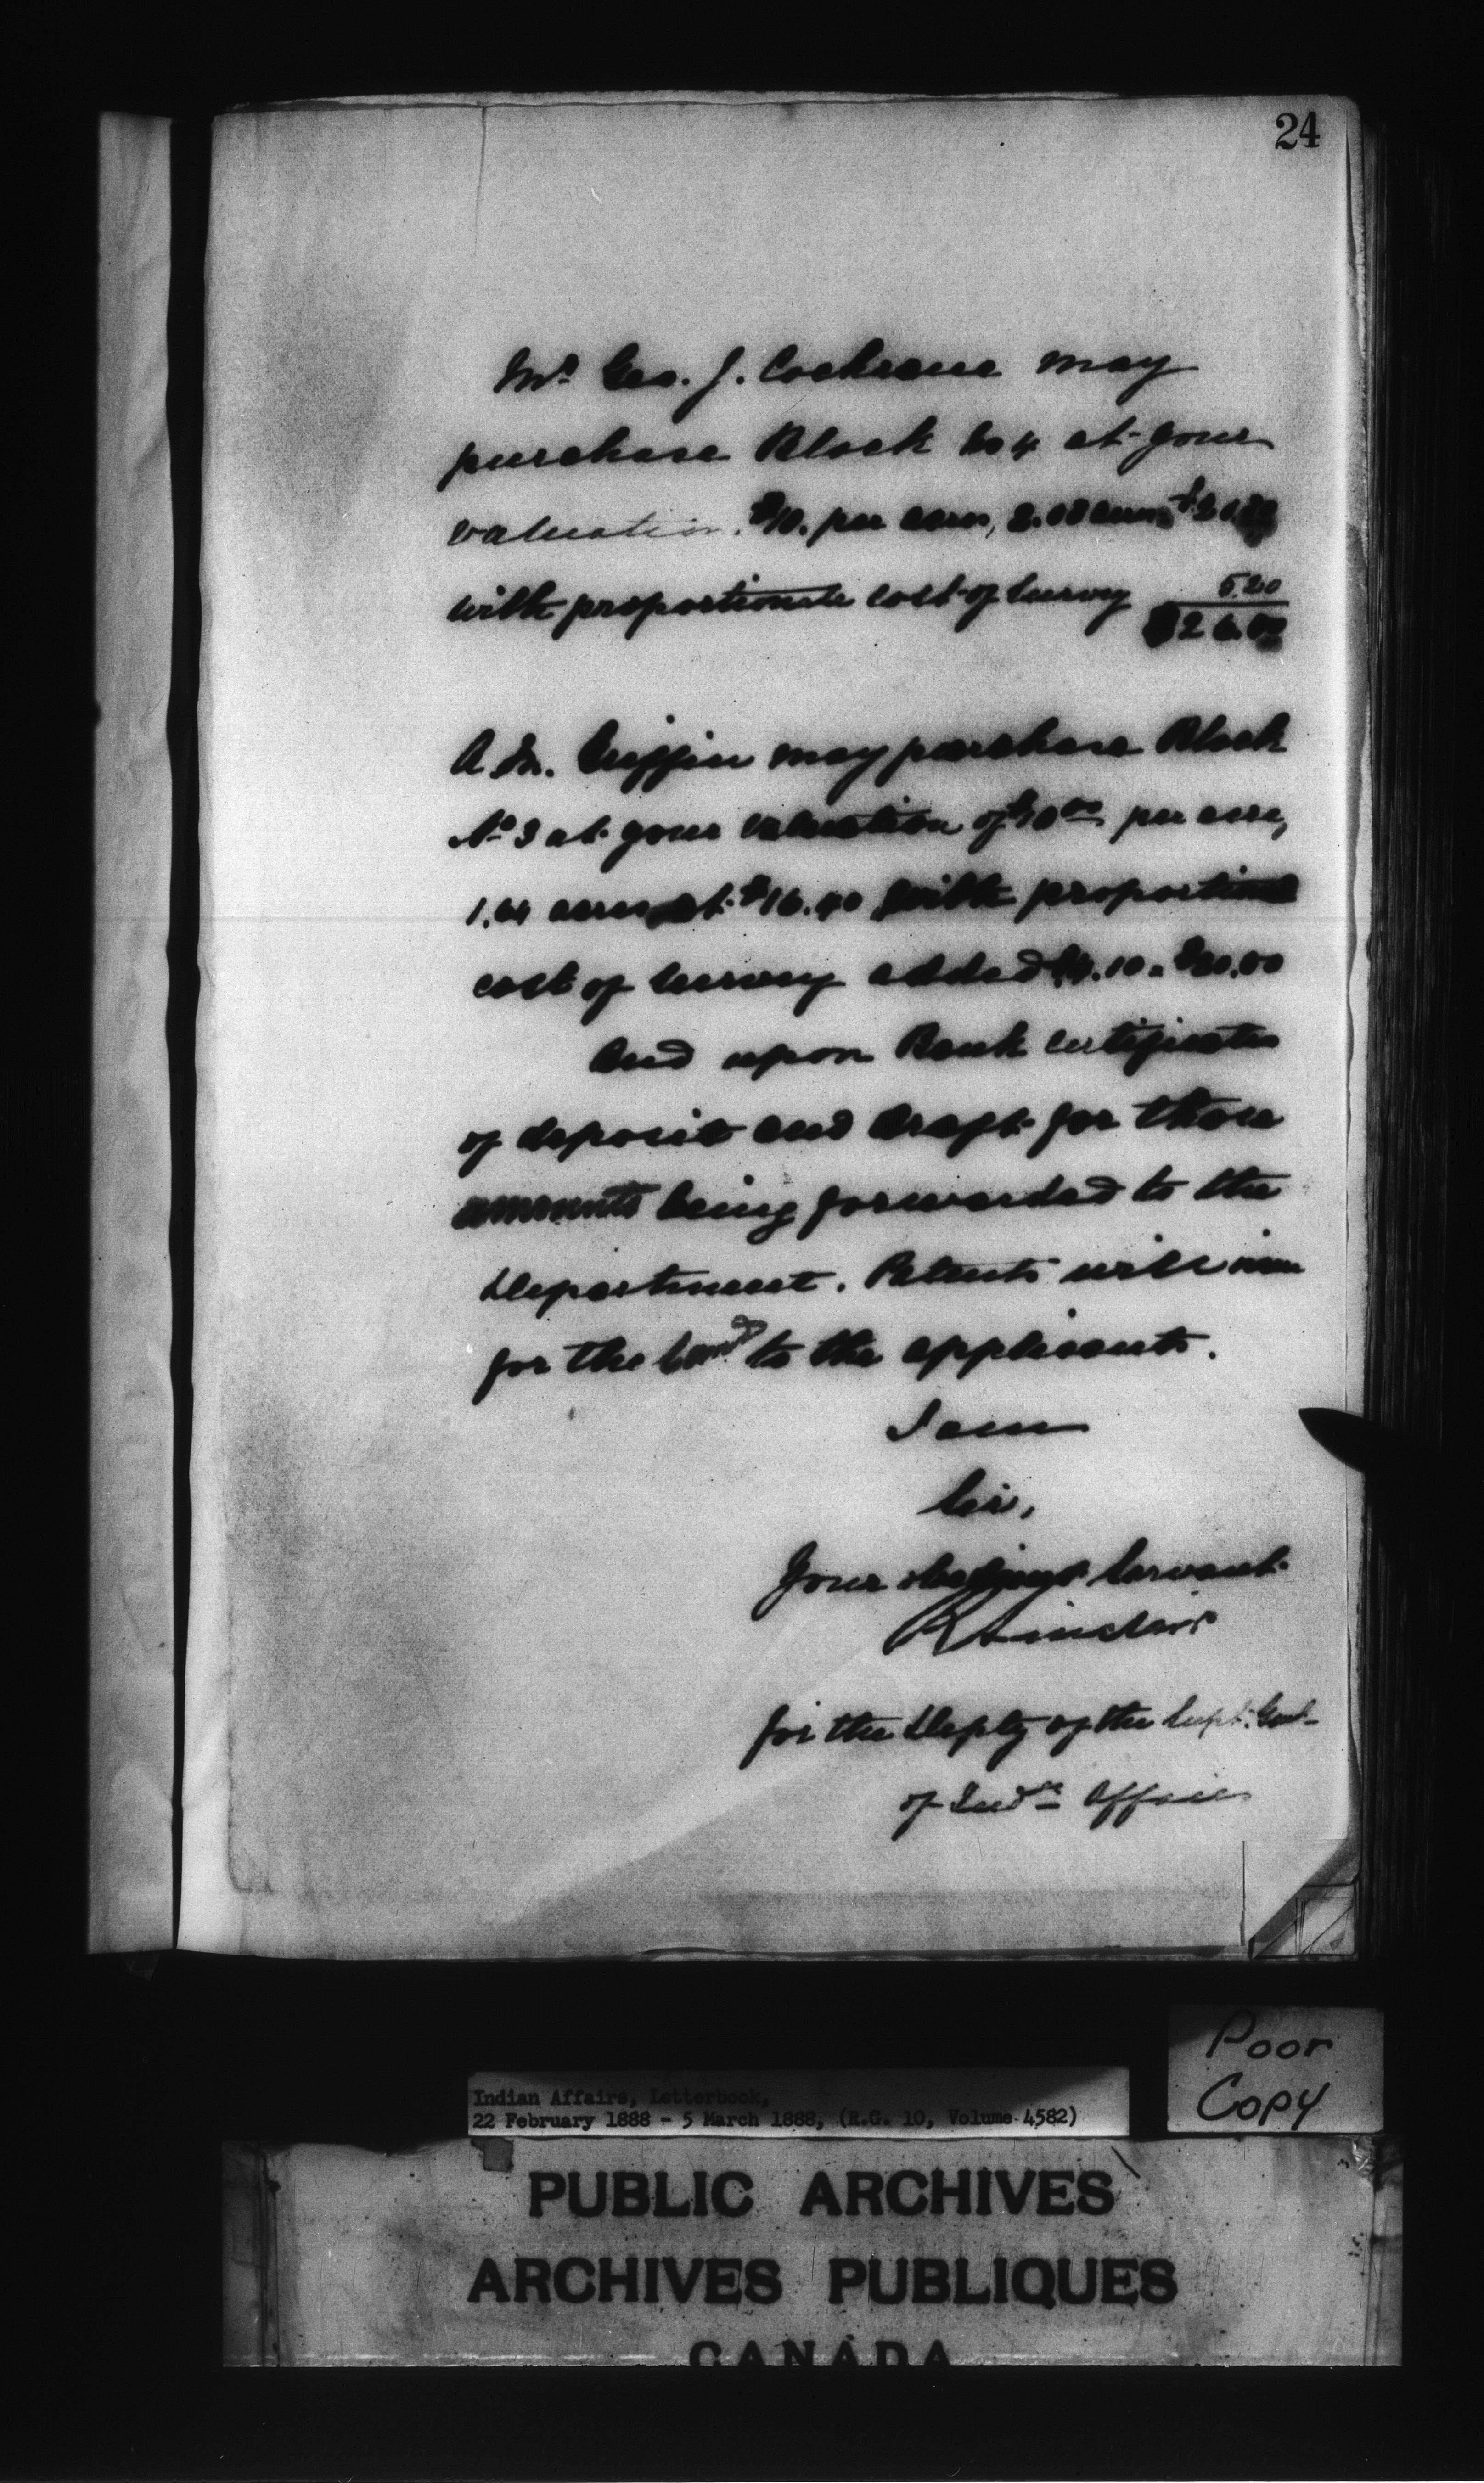 24
Mr. Geo. J. Cochrane may
purchase Block No 4 at your
valuation. $10. per acre, 2.08 acres $20.80
with proportionate cost of Survey 5.20
$26.00
A. M. Griffin may purchase Block
No 3 at your valuation of $10 00 per acre,
1.64 acres at $16.40 with proportionate
cost of Survey added $4.10 = $20.50
And upon Bank certificates
of deposit and draft for those
amounts being forwarded to the
Department. Patents will issue
for the land to the applicants.
I am
Sir,
Your obedient Servant
R Sinclair
for the Depty of the Supt. Genl
of Indn Affairs
Poor
Copy
Indian Affairs, Letterbook,
22 February 1888 - 5 March 1888, (R.G. 10, Volume 4582)
PUBLIC ARCHIVES
ARCHIVES PUBLIQUES
CANADA